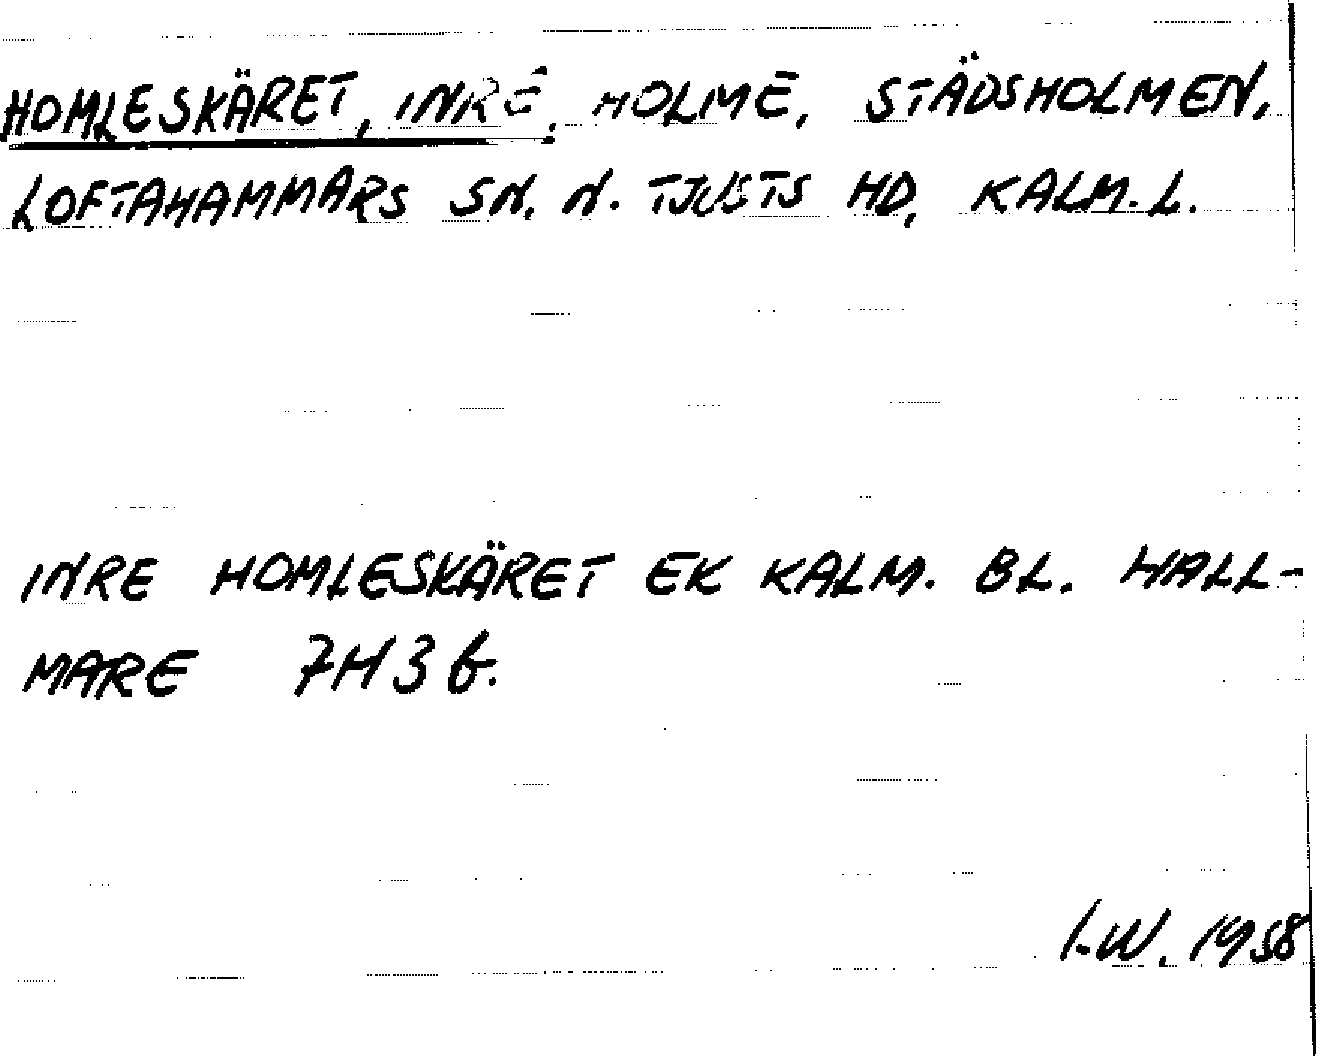 HOMLESKÄRET, INRE, HOLME, STÄDSHOLMEN,
LOFTAHAMMARS SN, N. TJUSTS HD, KALM. L.
INRE HOMLESKÄRET EK KALM. BL. HALL-
MARE 7H3b.
I.W. 1958